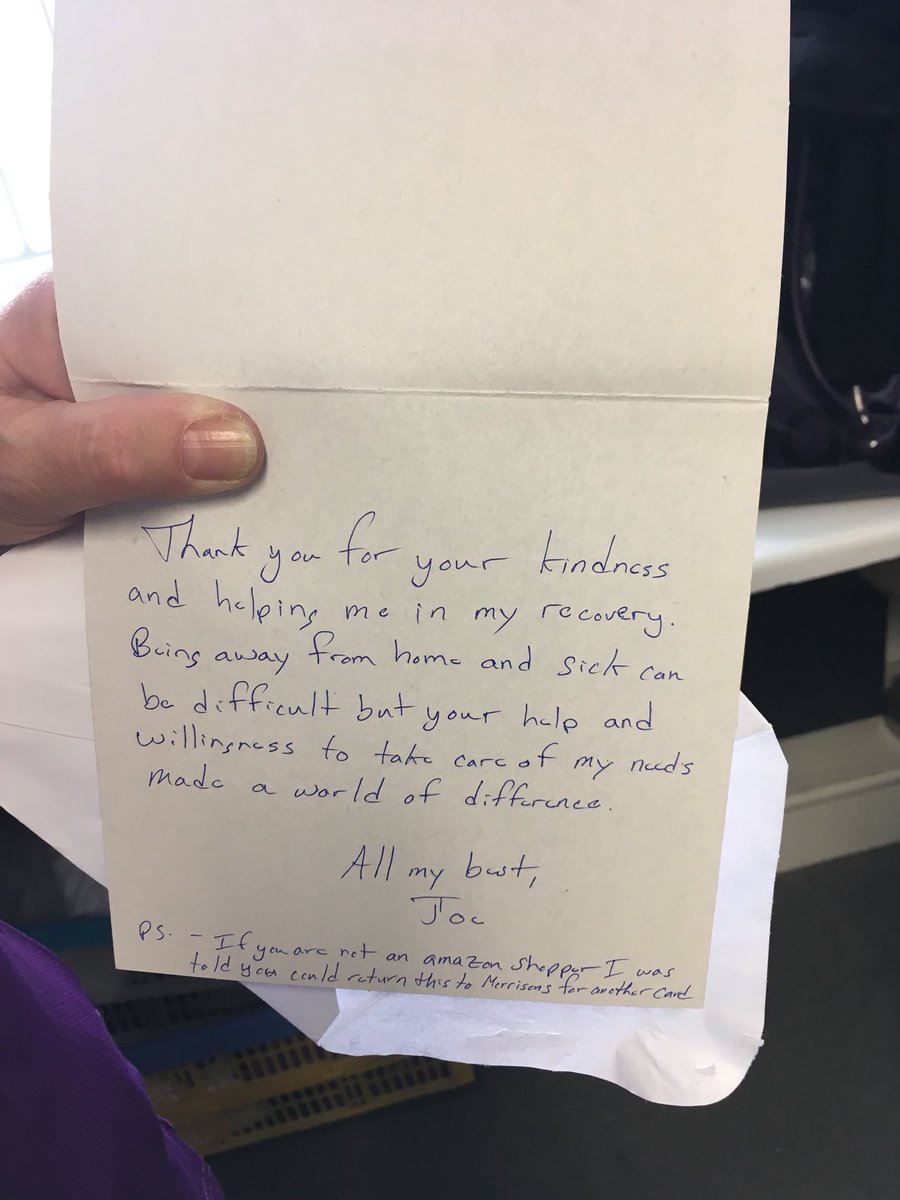 Thank you for your kindness
and helping me in my recovery.
Being away from home and sick can
be difficult but your help and
willingness to take care of my needs
made a world of difference.
All my best,
Joe
PS. - If you are not an amazon shopper I was
told you could return this to Morrisons for another card